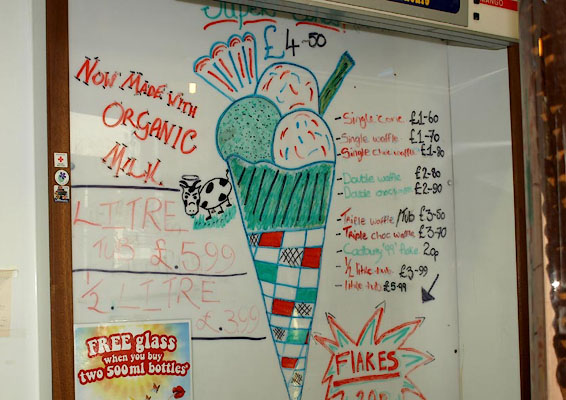 MANGO
£4-50
NOW MADE WITH
ORGANIC
MILK.
LITRE
TUB £5.99
½ LITRE
£.3.99
FREE glass
when you buy
two 500ml bottles*
- Single cone £1-60
- Single waffle £1-70
- Single choc waffle £1-80
- Double waffle £2-80
- Double £2-90
- Triple waffle/Tub £3-50
- Triple choc waffle £3-70
- Cadbury "99" flake 20p
- ½ litre tub £3-99
- litre tub £5-99
FLAKES
20p